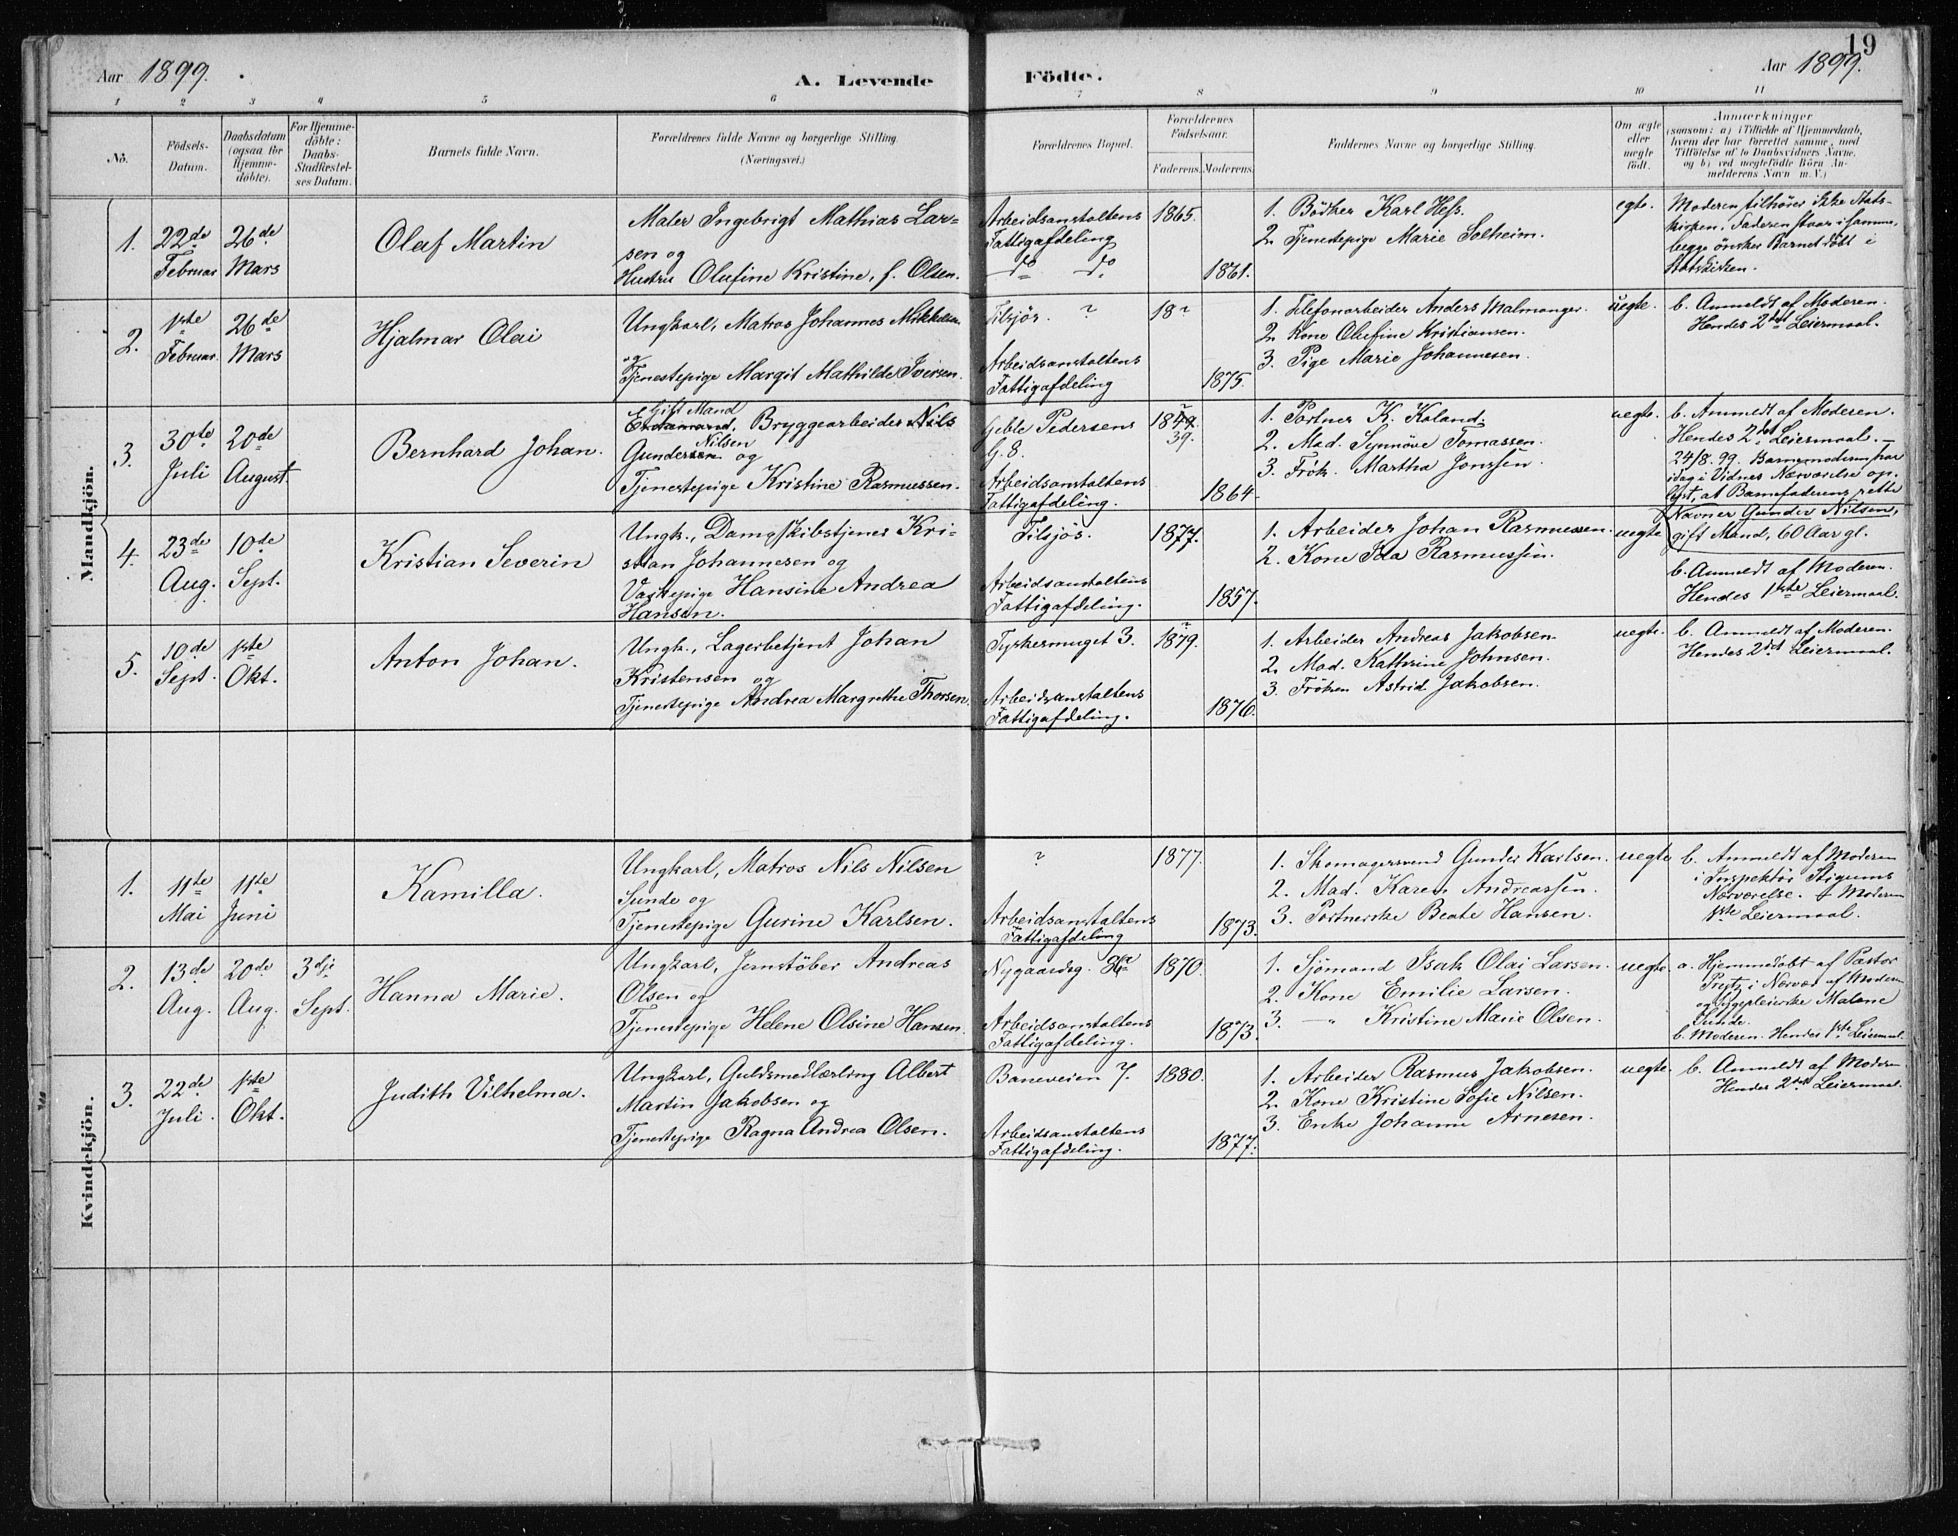 19
Aar 1899.
A. Levende Födte.
Aar 1899.
1 2 3 4 5 6 7 8 9 10 11
No.
Födsels-
Datum.
Daabsdatum
(ogsaa for
Hjemme-
döbte).
For Hjemme-
döbte:
Daabs-
Stadfæstel-
ses Datum.
Barnets fulde Navn.
Forældrenes fulde Navne og borgerlige Stilling.
(Næringsvei.)
Forældrenes Bopæl.
Forældrenes
Födselsaar.
Faderens. Moderens.
Faddernes Navne og borgerlige Stilling.
Om ægte
eller
uegte
födt.
Anmærkninger
(saasom: a) i Tilfælde af Hjemmedaab,
hvem der har forrettet samme, med
Tilföielse af to Daabsvidners Navne,
og b) ved uegtefödte Börn An-
melderens Navn m. V.)
Mandkjön.
1.
22de
Februar
26de
Mars
Olaf Martin
Maler Ingebrigt Mathias Lar=
sen og
Hustru Olufine Kristine, f. Olsen.
Arbeidsanstaltens
Fattigafdeling
do do
1865.
1861.
1. Bödker Karl Hess.
2. Tjenestepige Marie Solheim.
egte.
Moderen tilhører ikke Stats-
kirken, Faderen staar i samme,
begge ønsker Barnet døbt i
Statskirken.
2.
1ste
Februar.
26de
Mars
Hjalmar Olai
Ungkarl, Matros Johannes Mikkelsen
og
Tjenestepige Margit Mathilde Iversen.
Tilsjös. ?
Arbeidsanstaltens
Fattigafdeling
18 ?
1875.
1. Telefonarbeider Anders Malmanger.
2. Kone Olufine Kristiansen.
3. Pige Marie Johannesen.
uegte.
b. Anmeldt af Moderen.
Hendes 2det Leiermaal.
3.
30te
Juli
20de
August.
Bernhard Johan.
Gift Mand
Enkemand, Bryggearbeider Nils
Nilsen
Gundersen og
Tjenestepige Kristine Rasmussen.
Geble Pedersens
G. 8.
Arbeidsanstaltens
Fattigafdeling.
1849.
39.
1864
1. Portner K. Koland.
2. Mad. Synnöve Tomassen.
3. Frök. Martha Jonssen.
uegte.
b. Anmeldt af Moderen.
Hendes 2det Leiermaal. —
24/8. 99. Barnemoderen har
idag i Vidnes Nærværelse op-
lyst, at Barnefaderens rette
Navn er Gunder Nilsen,
gift Mand, 60 Aar gl.
4.
23de
Aug.
10de
Sept.
Kristian Severin
Ungk., Dampskibstjener Kri-
stian Johannesen og
Vaskepige Hansine Andrea
Hansen.
Tilsjös.
Arbeidsanstaltens
Fattigafdeling.
1877.
1857.
1. Arbeider Johan Rasmussen.
2. Kone Ida Rasmussen.
uegte
b. Anmeldt af Moderen.
Hendes 1ste Leiermaal.
5.
10de
Sept.
1ste
Okt.
Anton Johan.
Ungk., Lagerbetjent Johan
Kristensen og
Tjenestepige Andrea Margrethe Thorsen.
Tyskersmuget 3.
Arbeidsanstaltens
Fattigafdeling.
?
1879.
1876.
1. Arbeider Andreas Jakobsen.
2. Mad. Kathrine Johnsen.
3. Fröken Astrid Jakobsen.
uegte.
b. Anmeldt af Moderen.
Hendes 2det Leiermaal.
Kvindekjön.
1.
11te
Mai
11te
Juni
Kamilla.
Ungkarl, Matros Nils Nilsen
Sunde og
Tjenestepige Gurine Karlsen.
?
Arbeidsanstaltens
Fattigafdeling
1877.
1873.
1. Skomagersvend Gunder Karlsen.
2. Mad. Karen Andreassen.
3. Portnerske Beate Hansen.
uegte
b. Anmeldt af Moderen
i Inspektör Stigums
Nærværelse. Moderen
1ste Leiermaal.
2.
13de
Aug.
20de
Aug.
3dje
Sept.
Hanna Marie.
Ungkarl, Jernstöber Andreas
Olsen og
Tjenestepige Helene Olsine Hansen.
Nygaardsg.
Arbeidsanstaltens
Fattigafdeling.
1870.
1873.
1. Sjömand Isak Olai Larsen.
2. Kone Emilie Larsen.
3. — " Kristine Marie Olsen.
uegte
a. Hjemmedöbt af Pastor
i Nærvær af Moderen
og Sygepleierske Malene
Sunde.
b. Moderen. Hendes 1ste Leiermaal.
3.
22de
Juli.
1ste
Okt.
Judith Vilhelma.
Ungkarl, Guldsmedlærling Albert
Martin Jakobsen og
Tjenestepige Ragna Andrea Olsen.
Baneveien 7.
Arbeidsanstaltens
Fattigafdeling.
1880.
1877.
1. Arbeider Rasmus Jakobsen.
2. Kone Kristine Sofie Nilsen.
3. Enke Johanne Arnesen.
uegte.
b. Anmeldt af Moderen
Hendes 2det Leiermaal.